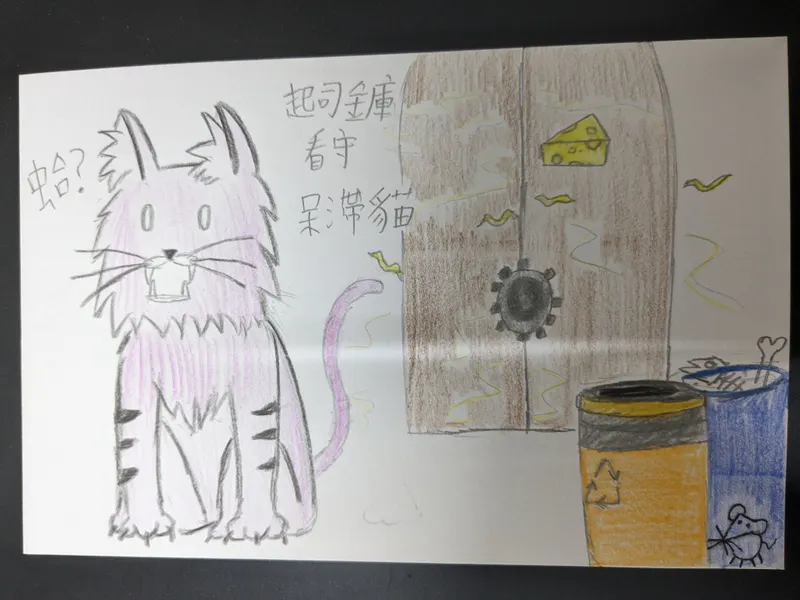 蛤?
起司金庫
看守
呆滯貓